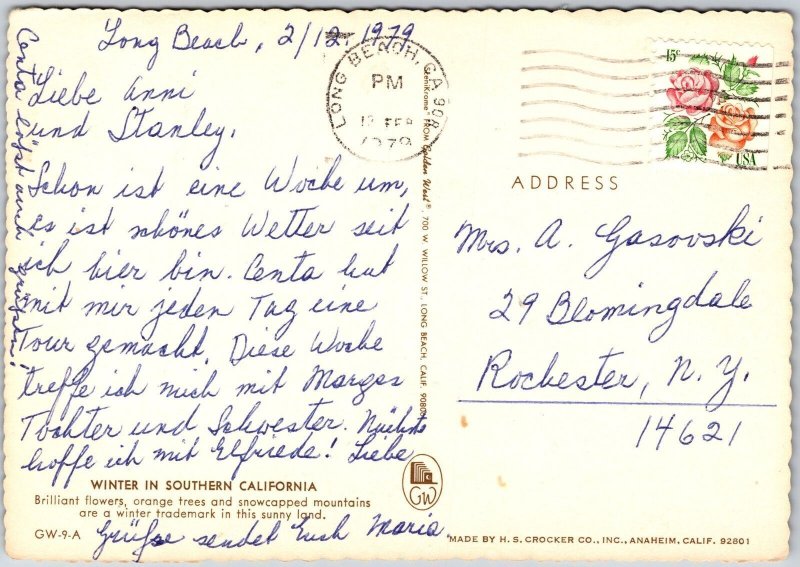 Long Beach, 2/12, 1979
Liebe Anni
und Stanley,
Schon ist eine Woche um,
es ist schönes Wetter seit
ich hier bin. Centa hat
mit mir jeden Tag eine
Tour gemacht. Diese Woche
treffe ich mich mit Margas
Tochter und Schwester.
hoffe ich mit Elfriede! Liebe
Grüße sendet Euch Maria.
Centa läßt auch grüßen!
WINTER IN SOUTHERN CALIFORNIA
Brilliant flowers, orange trees and snowcapped mountains
are a winter trademark in this sunny land.
GW-9-A
FROM Golden West®, 700 W. WILLOW ST., LONG BEACH, CALIF. 90806
GW
LONG BEACH, CA 908
PM
12 FEB
1979
15c
USA
ADDRESS
Mrs. A. Gasovski
29 Blomingdale
Rochester, N.Y.
14621
MADE BY H. S. CROCKER CO., INC., ANAHEIM, CALIF. 92801